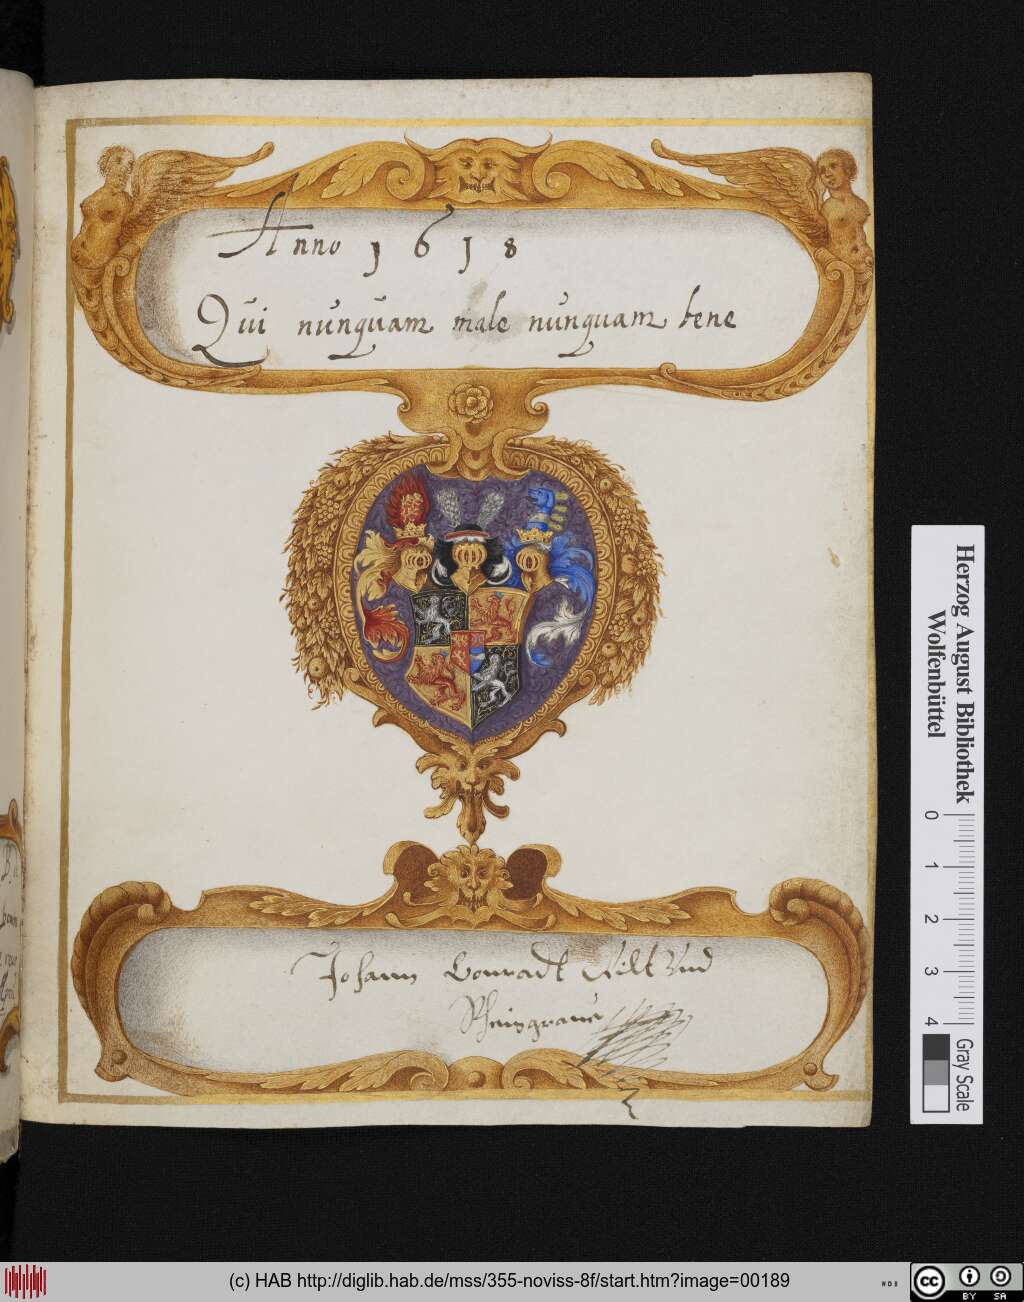 Anno 1618
Qui nunquam male nunquam bene
Johann Conradt Wilt Vnd
Rheingraue
Herzog August Bibliothek
Wolfenbüttel
0 1 2 3 4
Gray Scale
(c) HAB http://diglib.hab.de/mss/355-noviss-8f/start.htm?image=00189
WDB
cc BY SA